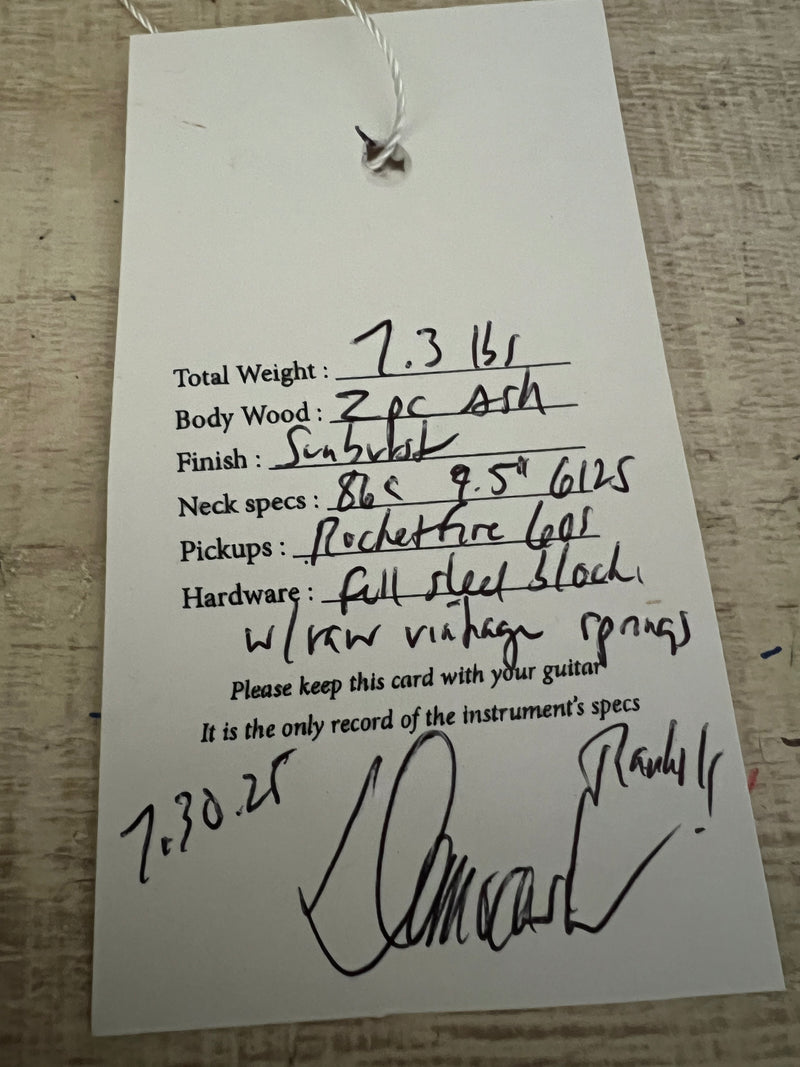 Total Weight : 7.3 lbs
Body Wood : 2 pc Ash
Finish : Sunburst
Neck specs : 86c 9.5" 6125
Pickups : Rocketfire 60s
Hardware : full steel block
w/ raw vintage springs
Please keep this card with your guitar
It is the only record of the instrument's specs
7.30.25
Thanks!!